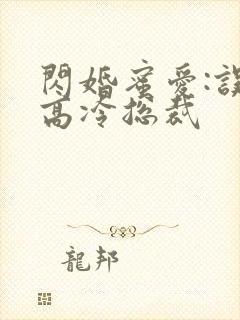 閃婚蜜愛:誤
高冷總裁
龍邦